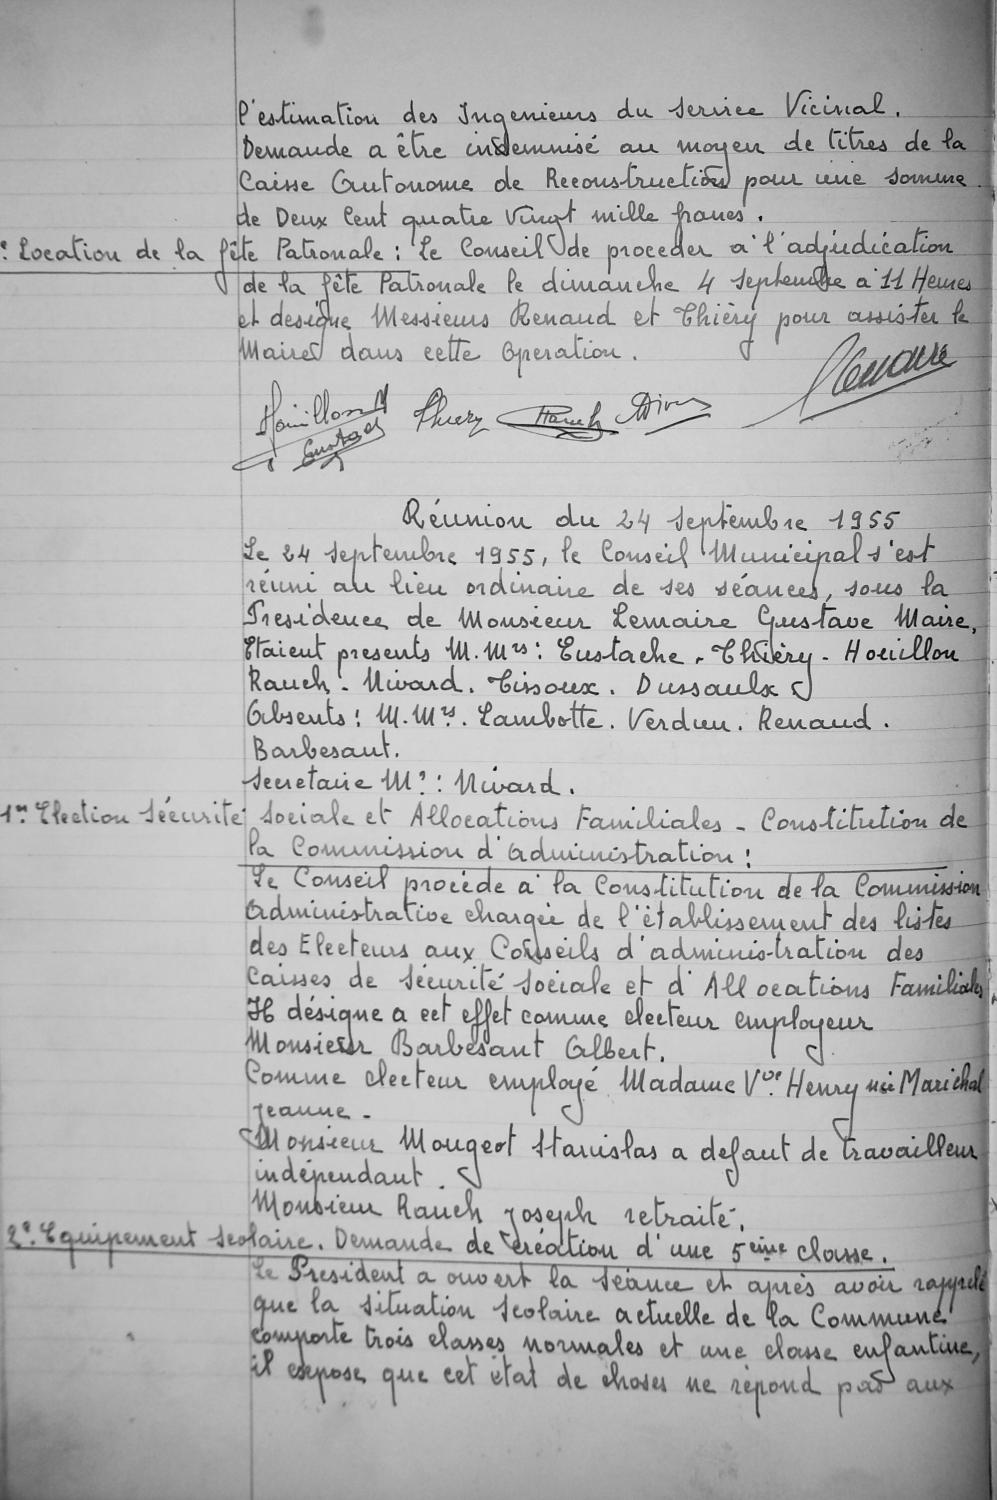 l'estimation des Ingenieurs du Service Vicinal.
Demande a être indemnisé au moyen de titres de la
Caisse Autonome de Reconstruction pour une somme
de Deux Cent quatre Vingt mille francs.
Location de la fête Patronale : Le Conseil de proceder a l'adjudication
de la fête Patronale le dimanche 4 Septembre a 11 Heures
et designe Messieurs Renaud et Thiéry pour assister le
Maire dans cette Operation.
Houillon Thiery Rauch
Eustache
Réunion du 24 Septembre 1955
Le 24 Septembre 1955, le Conseil Municipal s'est
réuni au lieu ordinaire de ses séances, sous la
Presidence de Monsieur Lemaire Gustave Maire,
Etaient presents M.Mrs : Eustache - Thiéry - Houillon
Rauch - Nivard. Tissoux. Dussaulx
Absents : M.Mrs. Lambotte. Verdun. Renaud.
Barbesant.
Secretaire Mr : Nivard.
1er Election Sécurité Sociale et Allocations Familiales - Constitution de
la Commission d'Administration :
Le Conseil procède a la Constitution de la Commission
Administrative chargée de l'établissement des listes
des Electeurs aux Conseils d'administration des
Caisses de Sécurité Sociale et d'Allocations Familiales
Il désigne a cet effet comme electeur employeur
Monsieur Barbesant Albert.
Comme electeur employé Madame Vve Henry née Marichal
Jeanne -
Monsieur Mougeot Stanislas a defaut de travailleur
indépendant.
Monsieur Rauch Joseph retraité.
2e. Equipement Scolaire. Demande de création d'une 5eme classe.
Le President a ouvert la Séance et après avoir rappelé
que la situation Scolaire actuelle de la Commune
comporte trois classes normales et une classe enfantine,
il expose que cet état de choses ne répond pas aux